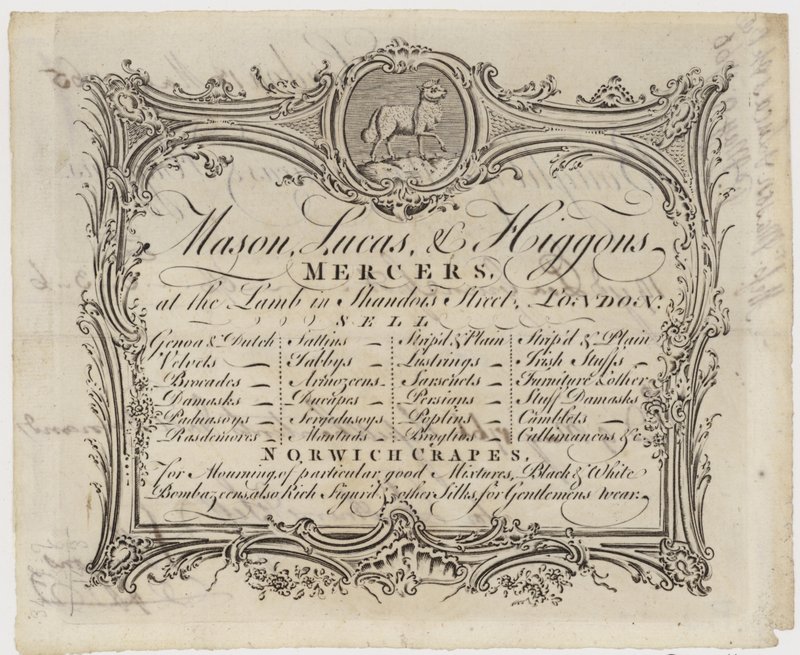 Mason, Lucas, & Higgons
MERCERS,
at the Lamb in Shandois Street, LONDON.
SELL
Genoa & Dutch Sattins Strip'd & Plain Strip'd & Plain
Velvets Tabbys Lustrings Irish Stuffs
Brocades Armozeens Sarsenets Furniture & other
Damasks Ducapes Persians Stuff Damasks
Paduasoys Sergedusoys Poplins Camblets
Rasdemores Mantuas Broglios Callimancos &c.
NORWICH CRAPES,
for Mourning, of particular good Mixtures, Black & White
Bombazeens, also Rich Figard & other Silks, for Gentlemens wear.